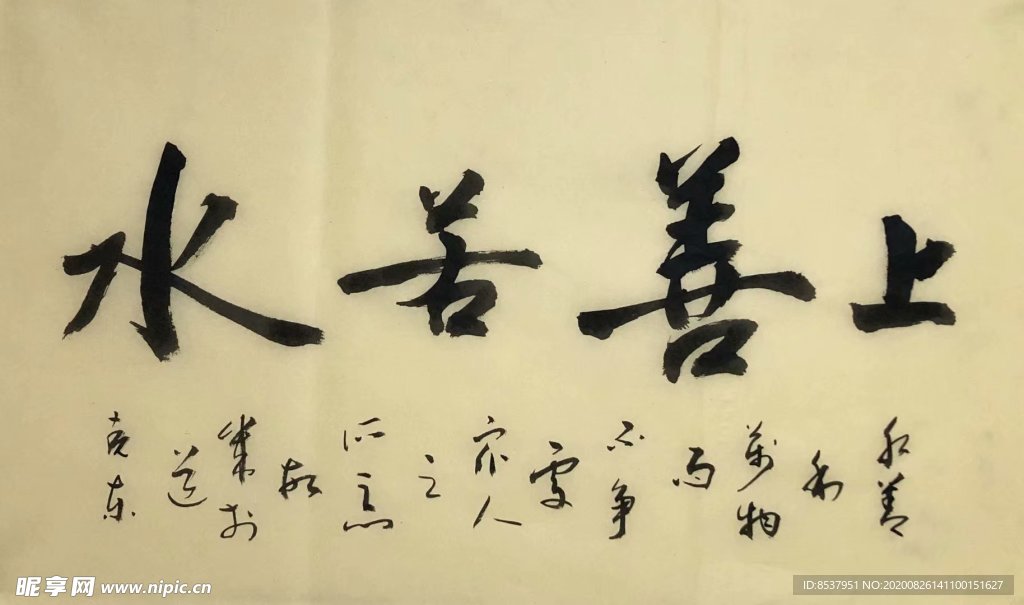 上善若水
水善利萬物而不争處衆人之所惡故幾於道
昵享网 www.nipic.cn
ID:8537951 NO:20200826141100151627